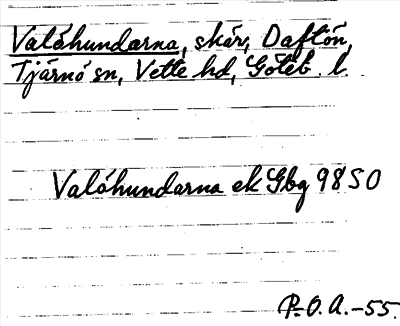 Valöhundarna, skär, Daftön,
Tjärnö sn, Vette hd, Göteb. l.
Valöhundarna ek Gbg 98 SO
P.O.A.-55.